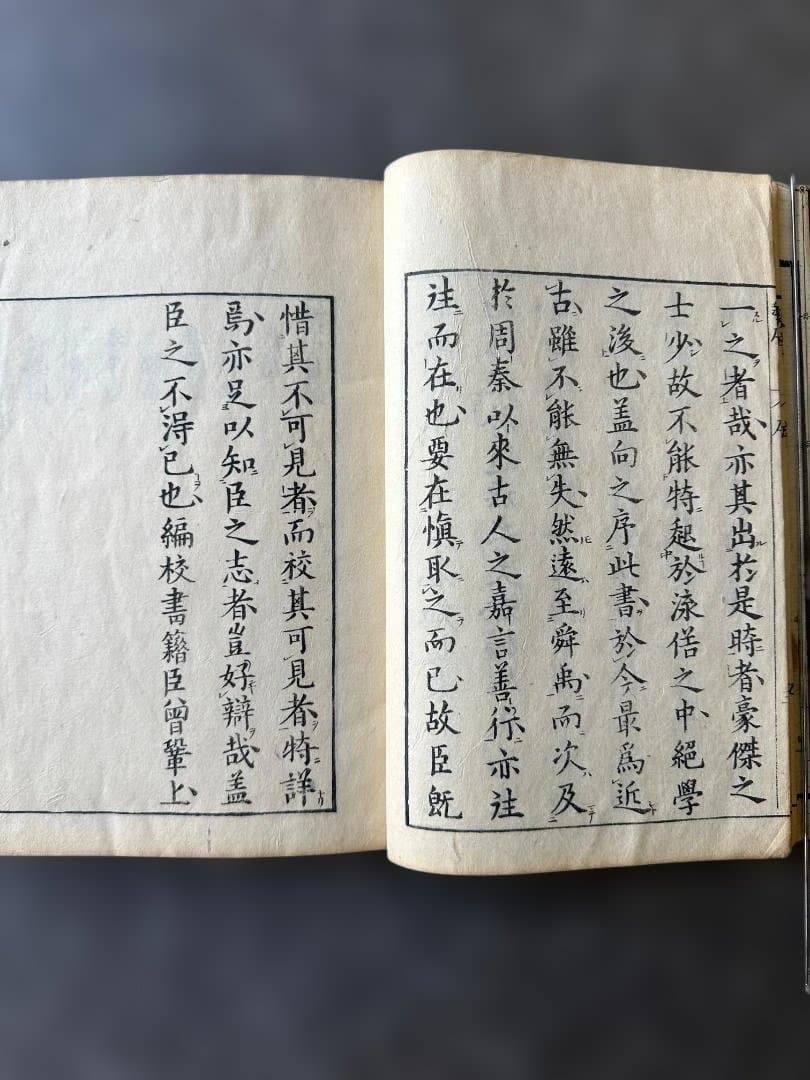 一之者哉亦其出於是時者豪傑之
士少故不能特起於流俗之中絕學
之後也盖向之序此書於今最爲近
古雖不能無失然遠至舜禹而次及
於周秦以來古人之嘉言善行亦往
往而在也要在慎取之而已故臣既
惜其不可見者而校其可見者特詳
焉亦足以知臣之志者豈好辯哉盖
臣之不得已也編校書籍臣曾鞏上